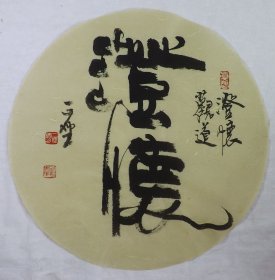 澄懷
觀道
澄懷